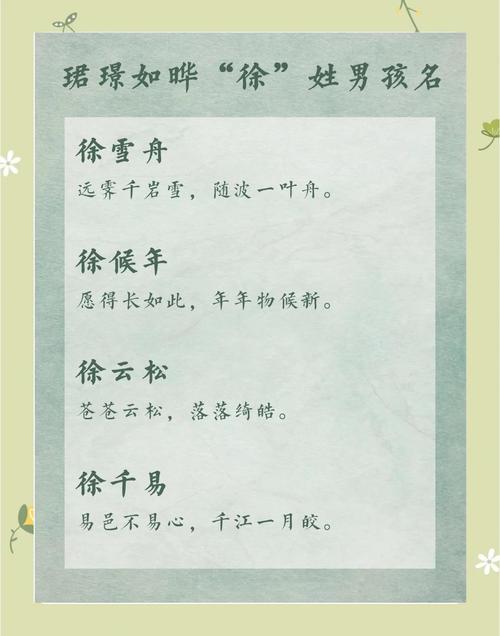 珺璟如晔“徐”姓男孩名
徐雪舟
远霁千岩雪，随波一叶舟。
徐候年
愿得长如此，年年物候新。
徐云松
苍苍云松，落落绮皓。
徐千易
易邑不易心，千江一月皎。